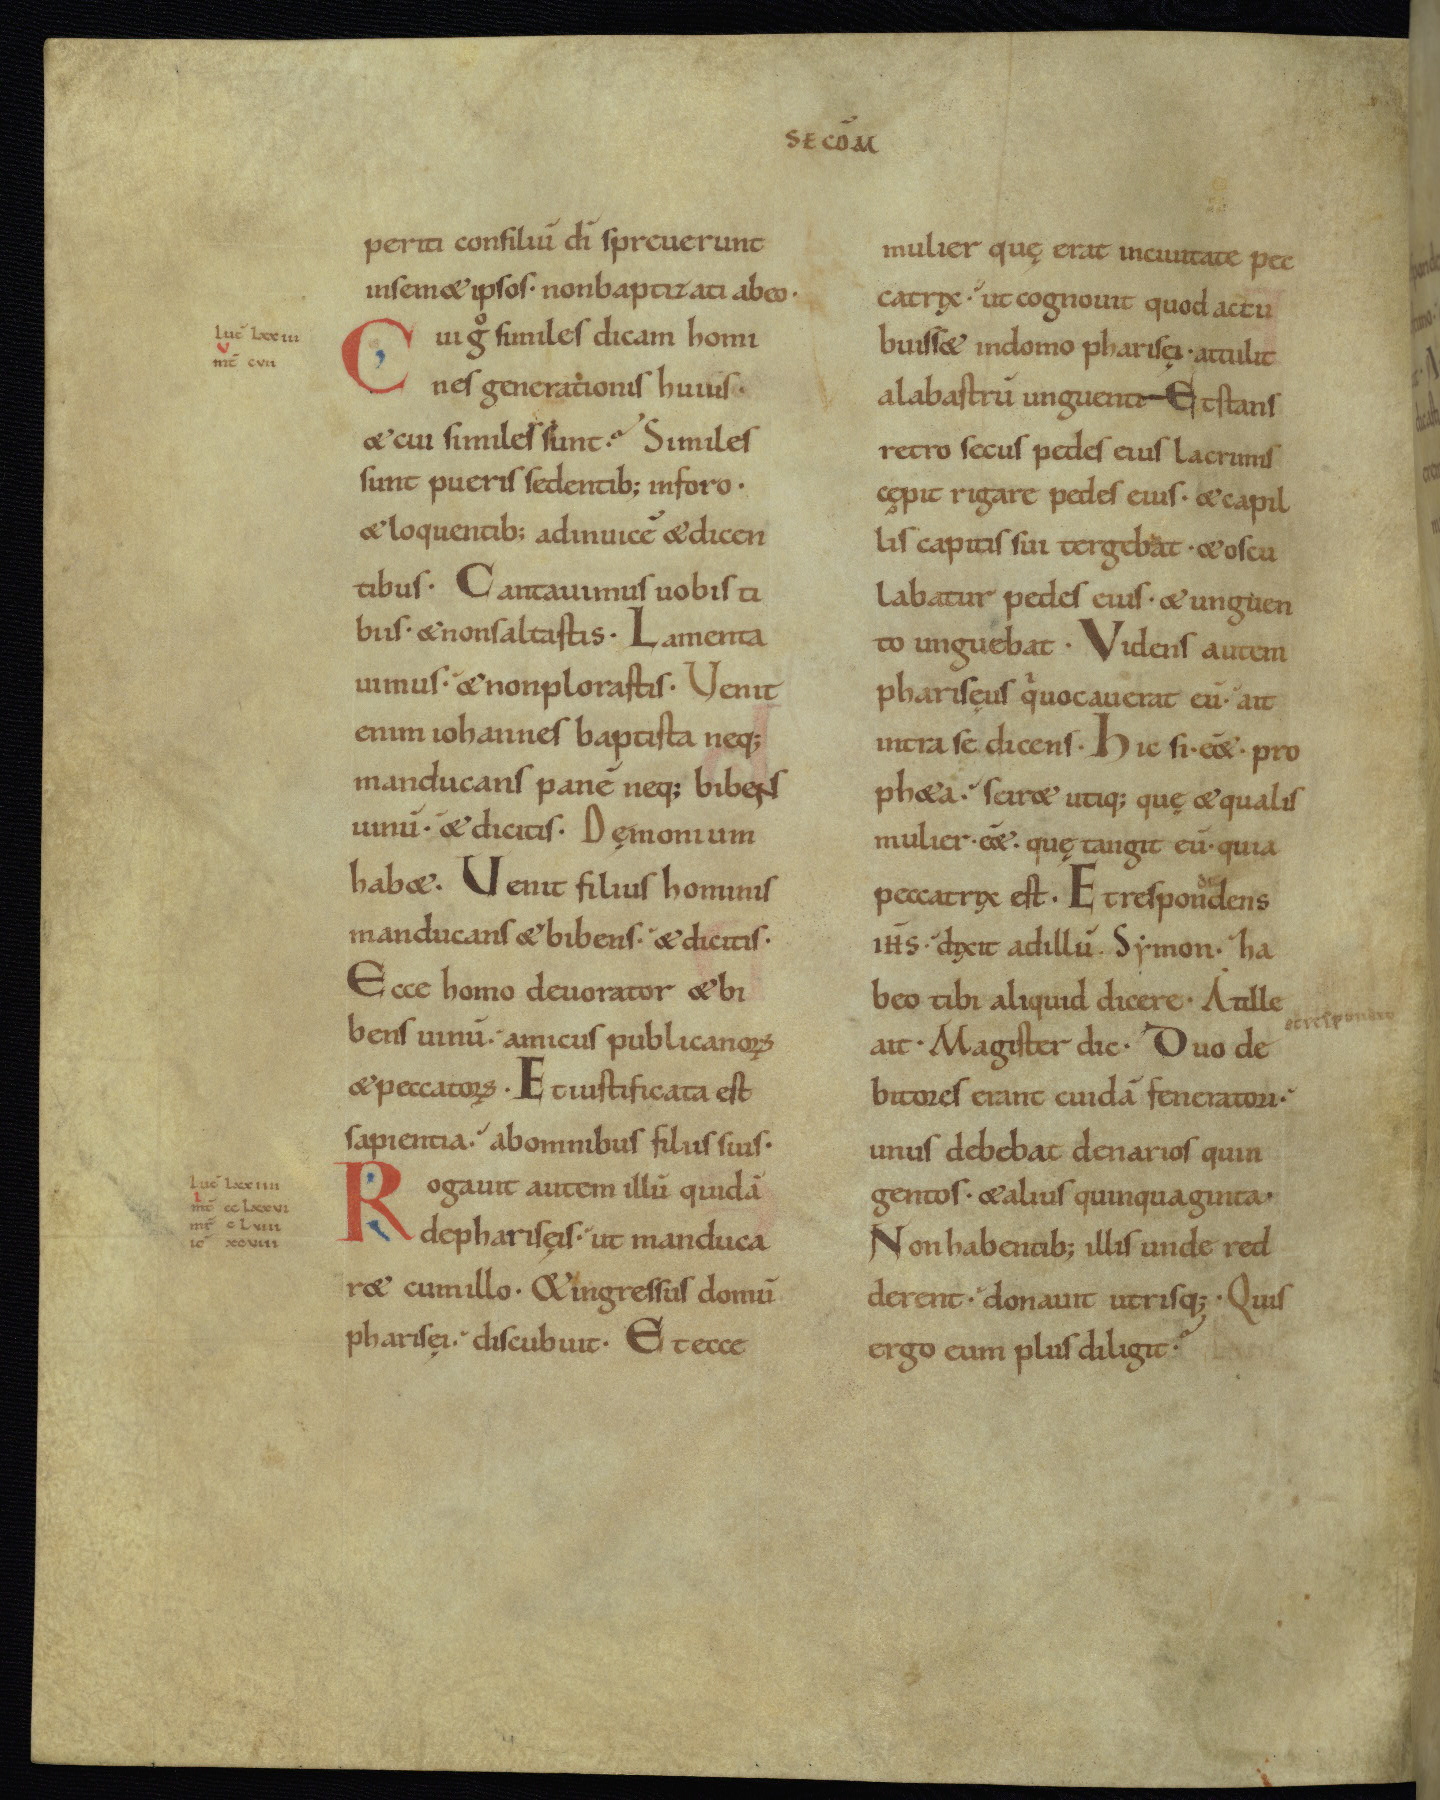 SECŌM
periti consiliū dī spreuerunt
insem&ipsos· nonbaptizati abeo·
Luc̄ lxxiii
V
mt̄ cvii
Cui gͦ similes dicam homi
nes generationis huius·
& cui similes sunt· Similes
sunt pueris sedentib; inforo·
& loquentib; adinuicē & dicen
tibus· Cantauimus uobis ti
biis· & nonsaltastis· Lamenta
uimus· & nonplorastis· Venit
enim iohannes baptista neq;
manducans panē neq; bibens
uinū· & dicitis· Dęmonium
hab&· Venit filius hominis
manducans & bibens· & dicitis·
Ecce homo deuorator & bi
bens uinū· amicus publicanoꝝ
& peccatoꝝ· Et iustificata est
sapientia· abomnibus filiis suis·
Luc̄ lxxiiii
I
mt̄ cclxxvi
mr̄ clviii
io̅ xcviii
Rogauit autem illū quidā
depharisęis· ut manduca
r& cumillo· & ingressus domū
pharisęi· discubuit· Et ecce
mulier quę erat inciuitate pec
catrix· ut cognouit quod accu
buiss& indomo pharisęi· attulit
alabastrū unguenti Et stans
retro secus pedes eius lacrimis
cępit rigare pedes eius· & capil
lis capitis sui tergebat· & oscu
labatur pedes eius· & unguen
to unguebat· Videns autem
pharisęus qͥ uocauerat eū· ait
intra se dicens· Hic si· ēē&· pro
ph&a· scir& utiq; quę & qualis
mulier· ē&· quę tangit eū· quia
peccatrix est· Et respondens
iħs· dixit adillū· Symon· ha
beo tibi aliquid dicere· At ille
ait· Magister dic· Duo de
bitores erant cuidā feneratori·
unus debebat denarios quin
gentos· & alius quinquaginta·
Non habentib; illis unde red
derent· donauit utrisq;· Quis
ergo eum plus diligit·